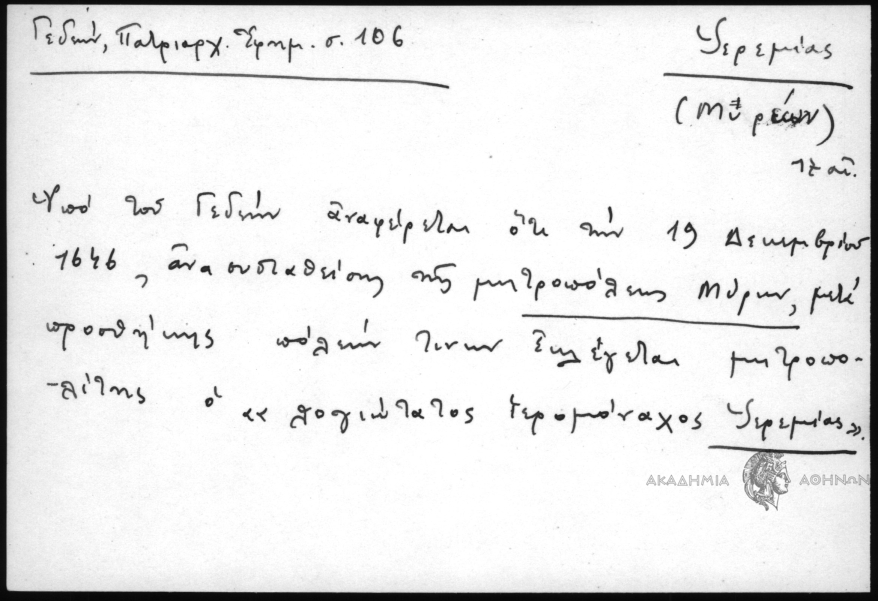 Γεδεών, Πατριαρχ. Ἐφημ. σ. 106
Ἱερεμίας
(Μυρέων)
17 αἰ.
Ὑπό τοῦ Γεδεών ἀναφέρεται ὅτι τήν 19 Δεκεμβρίου
1646, ἀνασυσταθείσης τῆς μητροπόλεως Μύρων, μετά
προσθήκης πόλεών τινων ἐκλέγεται μητροπο-
-λίτης ὁ «λογιώτατος ἱερομόναχος Ἱερεμίας».
ΑΚΑΔΗΜΙΑ ΑΘΗΝΩΝ